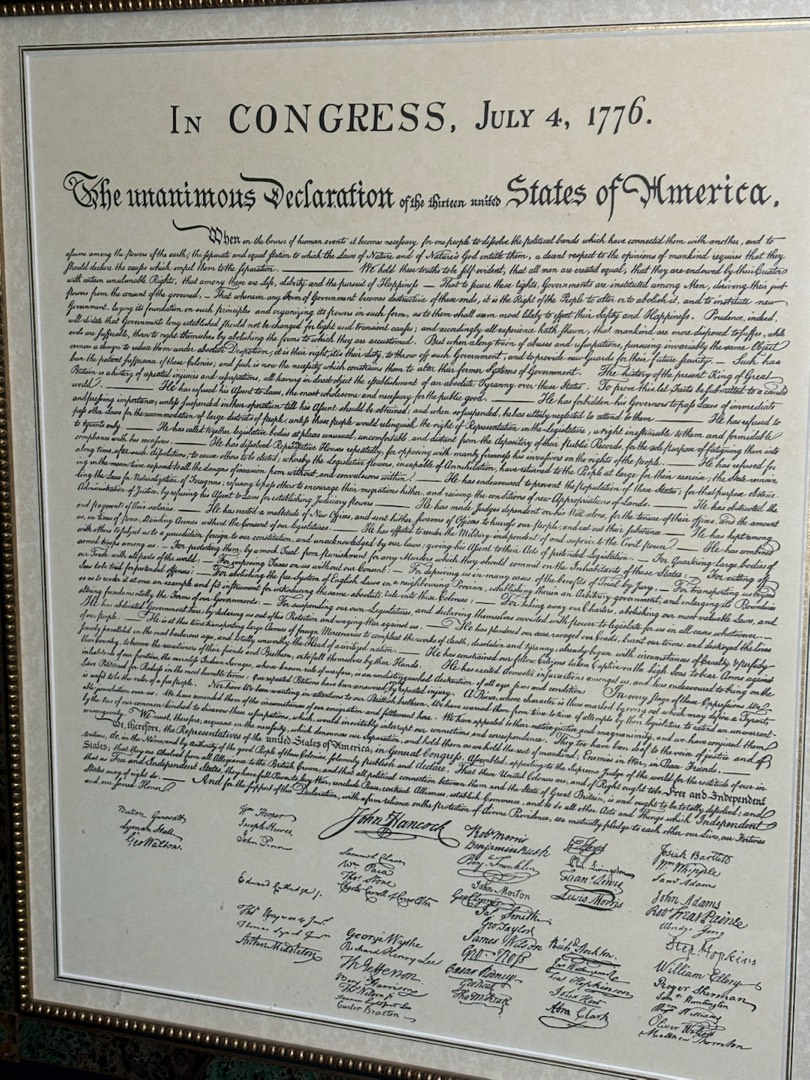 IN CONGRESS, JULY 4, 1776.
The unanimous Declaration of the thirteen united States of America,
When in the course of human events it becomes necessary for one people to dissolve the political bands which have connected them with another, and to
assume among the powers of the earth, the separate and equal station to which the Laws of Nature and of Nature's God entitle them, a decent respect to the opinions of mankind requires that they
should declare the causes which impel them to the separation. ——— We hold these truths to be self-evident, that all men are created equal, that they are endowed by their Creator
with certain unalienable Rights, that among these are Life, Liberty and the pursuit of Happiness — That to secure these rights, Governments are instituted among Men, deriving their just
powers from the consent of the governed, — That whenever any Form of Government becomes destructive of these ends, it is the Right of the People to alter or to abolish it, and to institute new
Government, laying its foundation on such principles and organizing its powers in such form, as to them shall seem most likely to effect their Safety and Happiness. Prudence, indeed,
will dictate that Governments long established should not be changed for light and transient causes; and accordingly all experience hath shewn, that mankind are more disposed to suffer, while
evils are sufferable, than to right themselves by abolishing the forms to which they are accustomed. But when a long train of abuses and usurpations, pursuing invariably the same Object
evinces a design to reduce them under absolute Despotism, it is their right, it is their duty, to throw off such Government, and to provide new Guards for their future security. — Such has
been the patient sufferance of these Colonies; and such is now the necessity which constrains them to alter their former Systems of Government. The history of the present King of Great
Britain is a history of repeated injuries and usurpations, all having in direct object the establishment of an absolute Tyranny over these States. To prove this, let Facts be submitted to a candid
world. ——— He has refused his Assent to Laws, the most wholesome and necessary for the public good. ——— He has forbidden his Governors to pass Laws of immediate
and pressing importance, unless suspended in their operation till his Assent should be obtained; and when so suspended, he has utterly neglected to attend to them ——— He has refused to
pass other Laws for the accommodation of large districts of people, unless those people would relinquish the right of Representation in the Legislature, a right inestimable to them and formidable
to tyrants only. ——— He has called together legislative bodies at places unusual, uncomfortable, and distant from the depository of their Public Records, for the sole purpose of fatiguing them into
compliance with his measures. ——— He has dissolved Representative Houses repeatedly, for opposing with manly firmness his invasions on the rights of the people. ——— He has refused for
a long time, after such dissolutions, to cause others to be elected; whereby the Legislative powers, incapable of Annihilation, have returned to the People at large for their exercise; the State remain-
ing in the mean time exposed to all the dangers of invasion from without, and convulsions within. ——— He has endeavoured to prevent the population of these States; for that purpose obstruc-
ting the Laws for Naturalization of Foreigners; refusing to pass others to encourage their migrations hither, and raising the conditions of new Appropriations of Lands. ——— He has obstructed the
Administration of Justice, by refusing his Assent to Laws for establishing Judiciary powers. ——— He has made Judges dependent on his Will alone, for the tenure of their offices, and the amount
and payment of their salaries. ——— He has erected a multitude of New Offices, and sent hither swarms of Officers to harrass our people, and eat out their substance. ——— He has kept among
us, in times of peace, Standing Armies without the Consent of our legislatures. ——— He has affected to render the Military independent of and superior to the Civil power. ——— He has combined
with others to subject us to a jurisdiction foreign to our constitution, and unacknowledged by our laws; giving his Assent to their Acts of pretended Legislation: — For Quartering large bodies of
armed troops among us: — For protecting them, by a mock Trial, from punishment for any Murders which they should commit on the Inhabitants of these States: — For cutting off
our Trade with all parts of the world: — For imposing Taxes on us without our Consent: — For depriving us in many cases, of the benefits of Trial by Jury: — For transporting us beyond
Seas to be tried for pretended offences: — For abolishing the free System of English Laws in a neighbouring Province, establishing therein an Arbitrary government, and enlarging its Boundaries
so as to render it at once an example and fit instrument for introducing the same absolute rule into these Colonies: — For taking away our Charters, abolishing our most valuable Laws, and
altering fundamentally the Forms of our Governments: — For suspending our own Legislatures, and declaring themselves invested with power to legislate for us in all cases whatsoever. —
He has abdicated Government here, by declaring us out of his Protection and waging War against us. — He has plundered our seas, ravaged our Coasts, burnt our towns, and destroyed the lives
of our people. — He is at this time transporting large Armies of foreign Mercenaries to compleat the works of death, desolation and tyranny, already begun with circumstances of Cruelty & perfidy
scarcely paralleled in the most barbarous ages, and totally unworthy the Head of a civilized nation. — He has constrained our fellow Citizens taken Captive on the high Seas to bear Arms against
their Country, to become the executioners of their friends and Brethren, or to fall themselves by their Hands. — He has excited domestic insurrections amongst us, and has endeavoured to bring on the
inhabitants of our frontiers, the merciless Indian Savages, whose known rule of warfare, is an undistinguished destruction of all ages, sexes and conditions. In every stage of these Oppressions We
have Petitioned for Redress in the most humble terms: Our repeated Petitions have been answered by repeated injury. A Prince, whose character is thus marked by every act which may define a Tyrant,
is unfit to be the ruler of a free people. Nor have We been wanting in attentions to our British brethren. We have warned them from time to time of attempts by their legislature to extend an unwarrant-
able jurisdiction over us. We have reminded them of the circumstances of our emigration and settlement here. We have appealed to their native justice and magnanimity, and we have conjured them
by the ties of our common kindred to disavow these usurpations, which, would inevitably interrupt our connections and correspondence. They too have been deaf to the voice of justice and of
consanguinity. We must, therefore, acquiesce in the necessity, which denounces our Separation, and hold them, as we hold the rest of mankind, Enemies in War, in Peace Friends. —
We, therefore, the Representatives of the united States of America, in General Congress, Assembled, appealing to the Supreme Judge of the world for the rectitude of our in-
tentions, do, in the Name, and by Authority of the good People of these Colonies, solemnly publish and declare, That these United Colonies are, and of Right ought to be Free and Independent
States; that they are Absolved from all Allegiance to the British Crown, and that all political connection between them and the State of Great Britain, is and ought to be totally dissolved; and
that as Free and Independent States, they have full Power to levy War, conclude Peace, contract Alliances, establish Commerce, and to do all other Acts and Things which Independent
States may of right do. — And for the support of this Declaration, with a firm reliance on the protection of divine Providence, we mutually pledge to each other our Lives, our Fortunes
and our sacred Honor.
John Hancock
Button Gwinnett
Lyman Hall
Geo Walton.
Wm Hooper
Joseph Hewes,
John Penn
Edward Rutledge /.
Thos Heyward Junr.
Thomas Lynch Junr.
Arthur Middleton
Samuel Chase
Wm Paca
Thos Stone
Charles Carroll of Carrollton
George Wythe
Richard Henry Lee
Th Jefferson
Benj Harrison
Thos Nelson jr.
Francis Lightfoot Lee
Carter Braxton
Robt Morris
Benjamin Rush
Benj. Franklin
John Morton
Geo Clymer
Jas. Smith
Geo. Taylor
James Wilson
Geo. Ross
Caesar Rodney
Geo Read
Tho M:Kean
Wm Floyd
Phil. Livingston
Frans. Lewis
Lewis Morris
Richd. Stockton
Jno Witherspoon
Fras. Hopkinson
John Hart
Abra Clark
Josiah Bartlett
Wm Whipple
Saml Adams
John Adams
Robt Treat Paine
Elbridge Gerry
Step. Hopkins
William Ellery
Roger Sherman
Saml Huntington
Wm Williams
Oliver Wolcott
Matthew Thornton